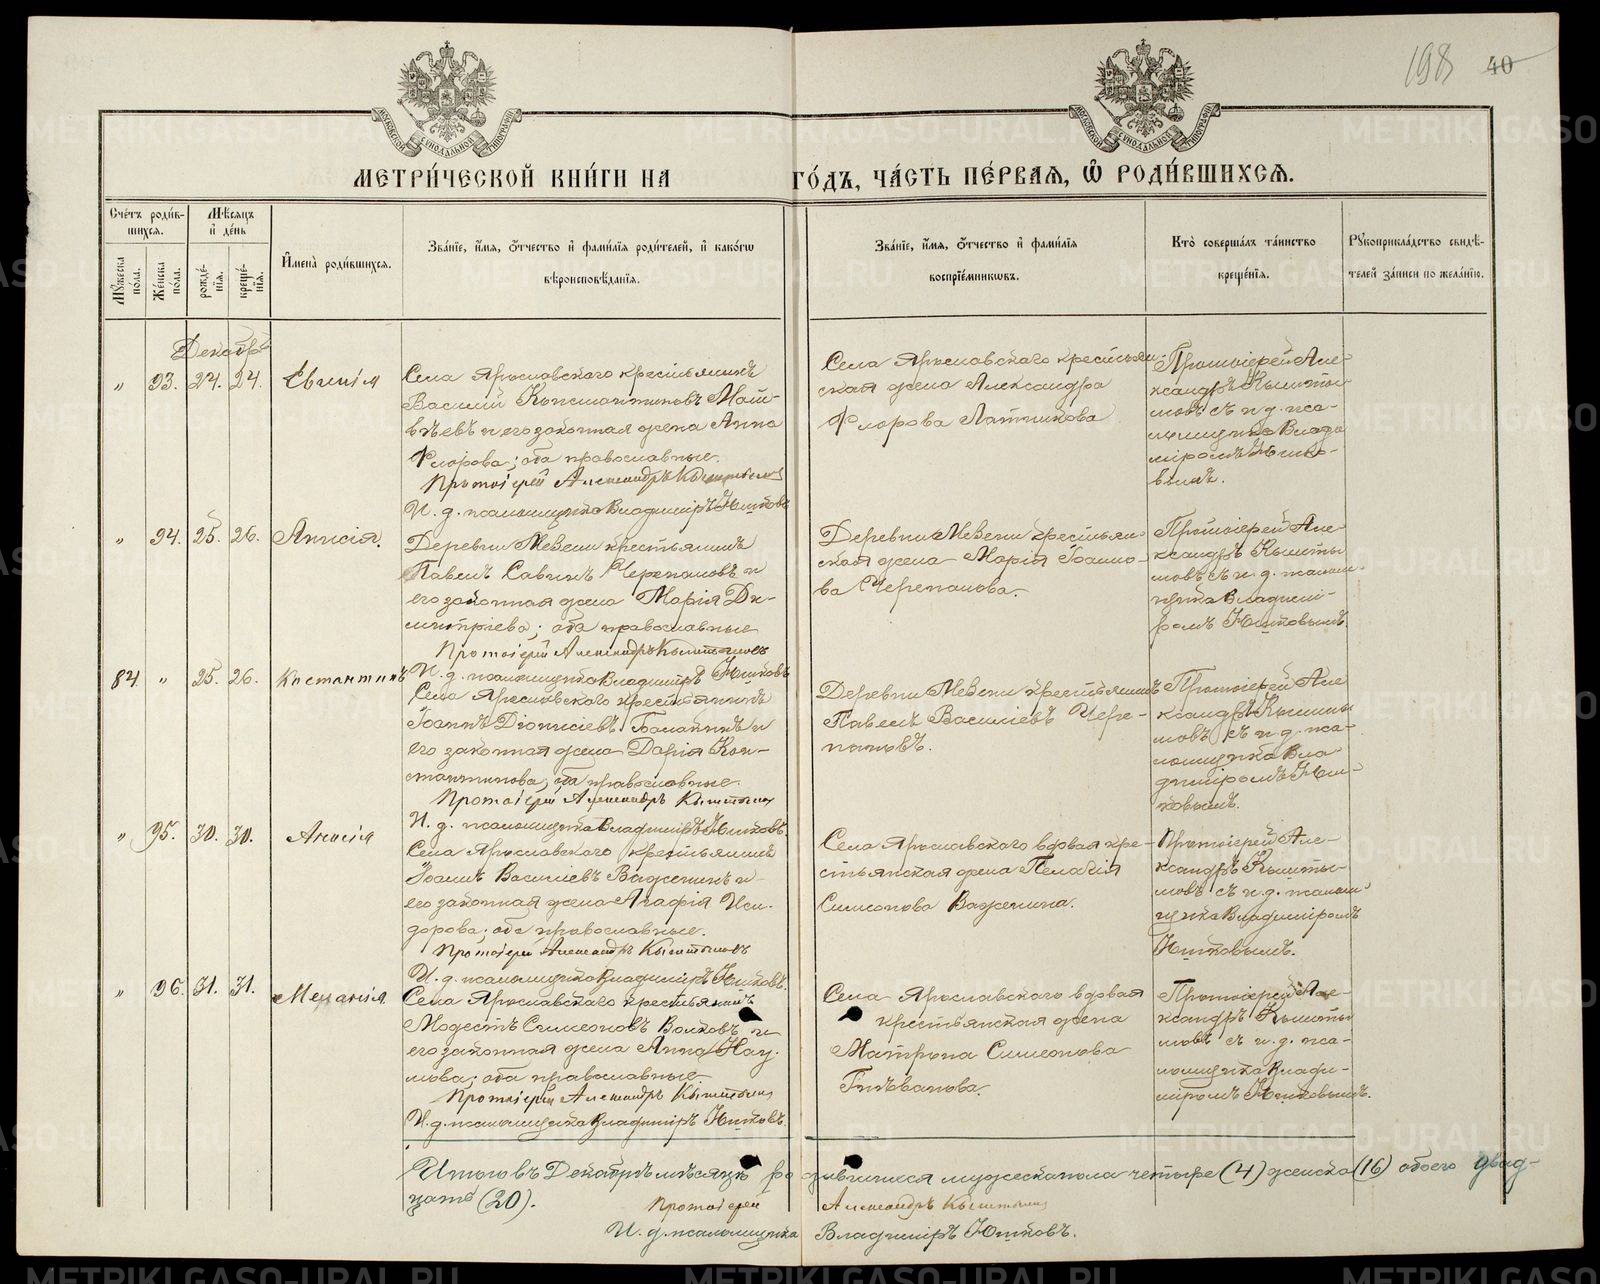 198 40
МОСКОВСКОЙ СѴНОДАЛЬНОЙ ТИПОГРАФІИ
МОСКОВСКОЙ СѴНОДАЛЬНОЙ ТИПОГРАФІИ
МЕТРИ́ЧЕСКОЙ КНИ́ГИ НА ГО́ДЪ, ЧА́СТЬ ПЕ́РВАѦ, Ѡ РОДИ́ВШИХСѦ.
Сче́тъ роди́в-
шихсѧ.
Мꙋ́жеска по́ла.
Же́нска по́ла.
Мѣ́сѧцъ и де́нь
рожде́-
нїѧ.
креще́-
нїѧ.
И́мена̀ роди́вшихсѧ.
Зва́нїе, и́мѧ, о́тчество и фами́лїѧ роди́телей, и како́гѡ
вѣроисповѣ́данїѧ.
Зва́нїе, и́мѧ, о́тчество и фами́лїѧ
воспрїе́мникѡвъ.
Кто̀ соверша́лъ та́инство
креще́нїѧ.
Рꙋкоприкла́дство свидѣ́-
телей за́писи по жела́нїю.
Декабрь
„ 93. 24. 24. Евгенія
Села Ярославскаго крестьянинъ
Василій Константиновъ Мат-
вѣевъ и его законная жена Анна
Флорова; оба православные.
Протоіерей Александръ Кыштымовъ
И. д. псаломщика Владиміръ Юшковъ
Села Ярославскаго крестьян-
ская жена Александра
Флорова Латникова
Протоіерей Але-
ксандръ Кышты-
мовъ съ и. д. пса-
ломщика Влади
міромъ Юшко-
вымъ.
„ 94. 25. 26. Анисія.
Деревни Мезени крестьянинъ
Павелъ Савинъ Черепановъ и
его законная жена Марія Ди-
митріева; оба православные
Протоіерей Александръ Кыштымовъ
И. д. псаломщика Владиміръ Юшковъ
Деревни Мезени крестьян-
ская жена Марія Іоанно-
ва Черепанова.
Протоіерей Але-
ксандръ Кышты
мовъ съ и. д. псалом-
щика Владимі-
ромъ Юшковымъ.
84. „ 25. 26. Костантинъ
Села Ярославскаго крестьянинъ
Іоаннъ Діонисіевъ и
его законная жена Дарія Кон-
стантинова; оба православные
Протоіерей Александръ Кыштымовъ
И. д. псаломщика Владиміръ Юшковъ.
Деревни Мезени крестьянинъ
Павелъ Василіевъ Чере-
пановъ.
Протоіерей Але
ксандръ Кышты
мовъ съ и. д. пса-
ломщика Вла
диміромъ Юш-
ковымъ.
„ 95. 30. 30. Анисія
Села Ярославскаго крестьянинъ
Іоаннъ Василіевъ Важенинъ и
его законная жена Агафія Иси-
дорова; оба православные.
Протоіерей Александръ Кыштымовъ
И. д. псаломщика Владиміръ Юшковъ.
Села Ярославскаго вдовая кре-
стьянская жена Пелагія
Симеонова Важенина.
Протоіерей Але-
ксандръ Кышты-
мовъ съ и. д. псалом-
щика Владиміромъ
Юшковымъ.
„ 96. 31. 31. Меланія
Села Ярославскаго крестьянинъ
Модестъ Симеоновъ Волковъ и
его законная жена Анна Нау-
мова; оба православные
Протоіерей Александръ Кыштымовъ
И. д. псаломщика Владиміръ Юшковъ.
Села Ярославскаго вдовая
крестьянская жена
Матрона Симеонова
Протоіерей Але-
ксандръ Кышты
мовъ съ и. д. пса-
ломщика Влади-
міромъ Юшковымъ.
Итого въ Декабрѣ мѣсяцѣ родившихся мужеска пола четыре (4) женска (16) обоего двад-
цать (20).
Протоіерей Александръ Кыштымовъ
И. д. псаломщика Владиміръ Юшковъ.
METRIKI.GASO-URAL.RU